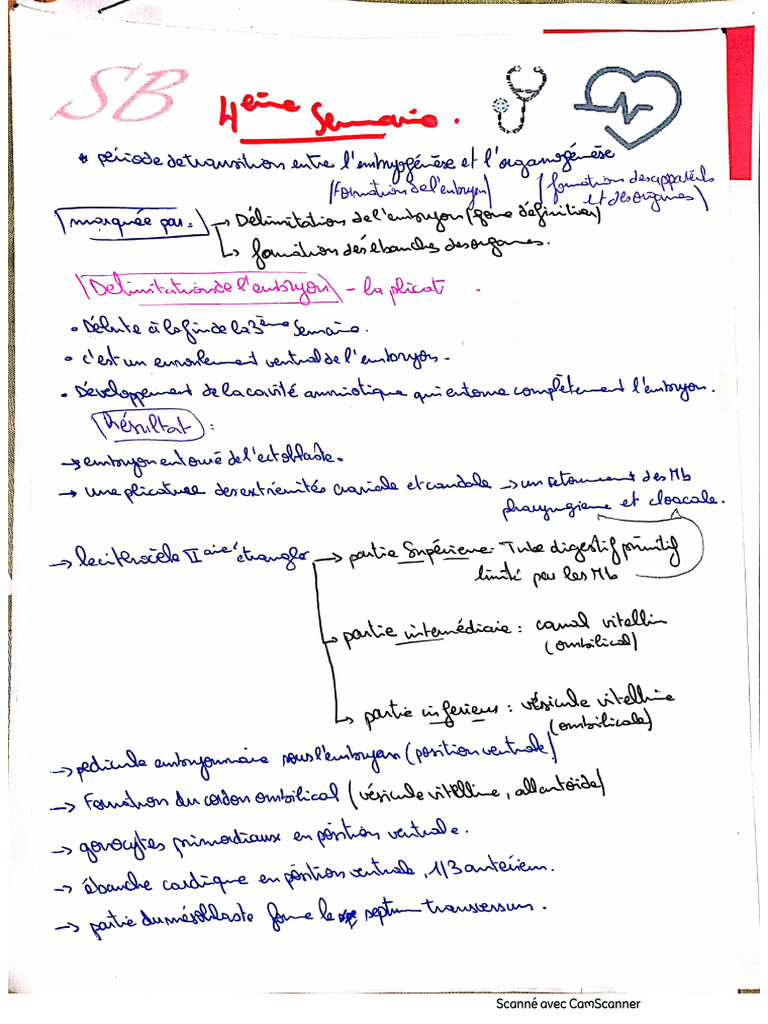 SB
4ème Semaine.
* période de transition entre l'embryogénèse et l'organogénèse
(formation de l'embryon) (formations des appareils et des organes)
marquée par: → Délimitation de l'embryon (forme définitive)
↳ formation des ébauches des organes.
Délimitation de l'embryon - la plicat .
• Débute à la fin de la 3ème semaine.
• c'est un enroulement ventral de l'embryon.
• Développement de la cavité amniotique qui entoure complètement l'embryon.
Résultat :
→ embryon entouré de l'ectoblaste.
→ une plicature des extrémités craniale et caudale → un retournement des Mb
pharyngienne et cloacale.
→ lecithocèle II aire étranglé → partie Supérieure Tube digestif primitif
limité par les Mb
→ partie intermédiaire : canal vitellin
(ombilical)
↳ partie inferieure : vésicule vitelline
(ombilicale)
→ pédicule embryonnaire sous l'embryon (position ventrale)
→ Formation du cordon ombilical (vésicule vitelline, allantoïde)
→ gonocytes primordiaux en position ventrale.
→ ébauche cardiaque en position ventrale, 1/3 antérieur.
→ partie du mésoblaste forme le septum transversum.
Scanné avec CamScanner